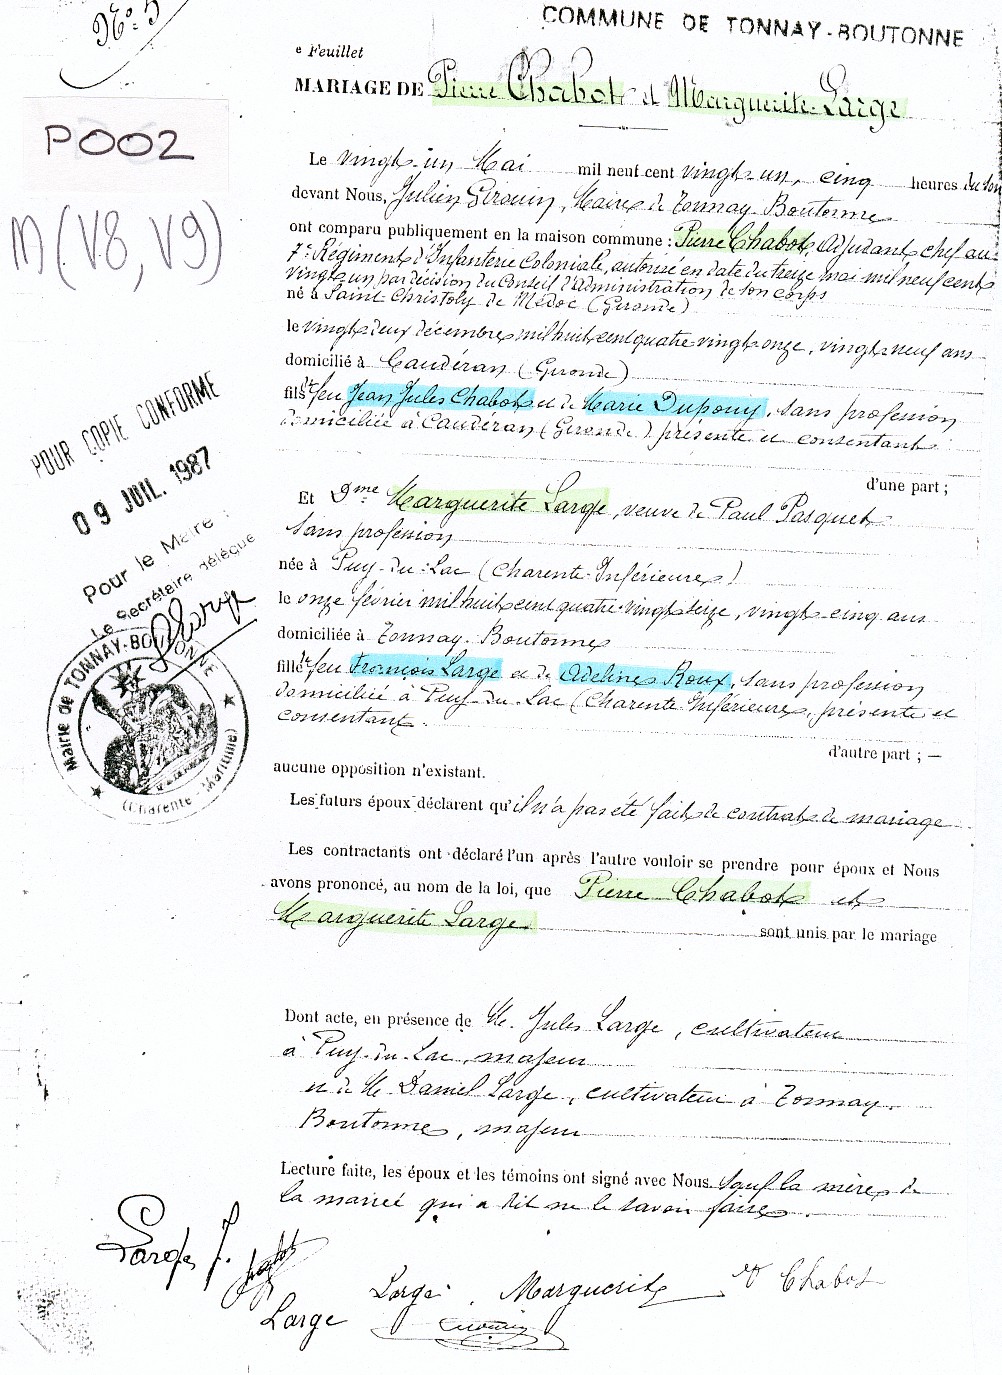 N°. 5
COMMUNE DE TONNAY-BOUTONNE
e Feuillet
MARIAGE DE Pierre Chabot et Marguerite Large
P002
M (V8, V9)
Le vingt-un Mai mil neuf cent vingt-un, cinq heures du soir
devant Nous, Julien Girouin, Maire de Tonnay-Boutonne
ont comparu publiquement en la maison commune : Pierre Chabot, Adjudant chef au
7e Régiment d'Infanterie Coloniale, autorisé en date du treize mai mil neuf cent
vingt un par décision du Conseil d'Administration de son corps
né à Saint-Christoly de Médoc (Gironde)
le vingt deux décembre mil huit cent quatre vingt onze, vingt neuf ans
domicilié à Caudéran (Gironde)
fils de feu Jean Jules Chabot et de Marie Dupouy, sans profession
domiciliée à Caudéran (Gironde) présente et consentant
d'une part ;
Et Dme Marguerite Large, veuve de Paul Pasquet
sans profession
née à Puy-du-Lac (Charente-Inférieure)
le onze février mil huit cent quatre vingt seize, vingt cinq ans
domiciliée à Tonnay-Boutonne
fille de feu François Large et de Adeline Roux, sans profession
domiciliée à Puy-du-Lac (Charente-Inférieure, présente et
consentant.
d'autre part ; —
aucune opposition n'existant.
Les futurs époux déclarent qu'il n'a pas été fait de contrat de mariage
Les contractants ont déclaré l'un après l'autre vouloir se prendre pour époux et Nous
avons prononcé, au nom de la loi, que Pierre Chabot et
Marguerite Large sont unis par le mariage
Dont acte, en présence de M. Jules Large, cultivateur
à Puy-du-Lac, majeur
et de M Daniel Large, cultivateur à Tonnay-
Boutonne, majeur
Lecture faite, les époux et les témoins ont signé avec Nous sauf la mère de
la mariée qui a dit ne le savoir faire.
POUR COPIE CONFORME
09 JUIL. 1987
Pour le Maire :
Le Secrétaire délégué
Mairie de TONNAY-BOUTONNE
(Charente - Maritime)
Large J.
Large
Large
Marguerite
Chabot